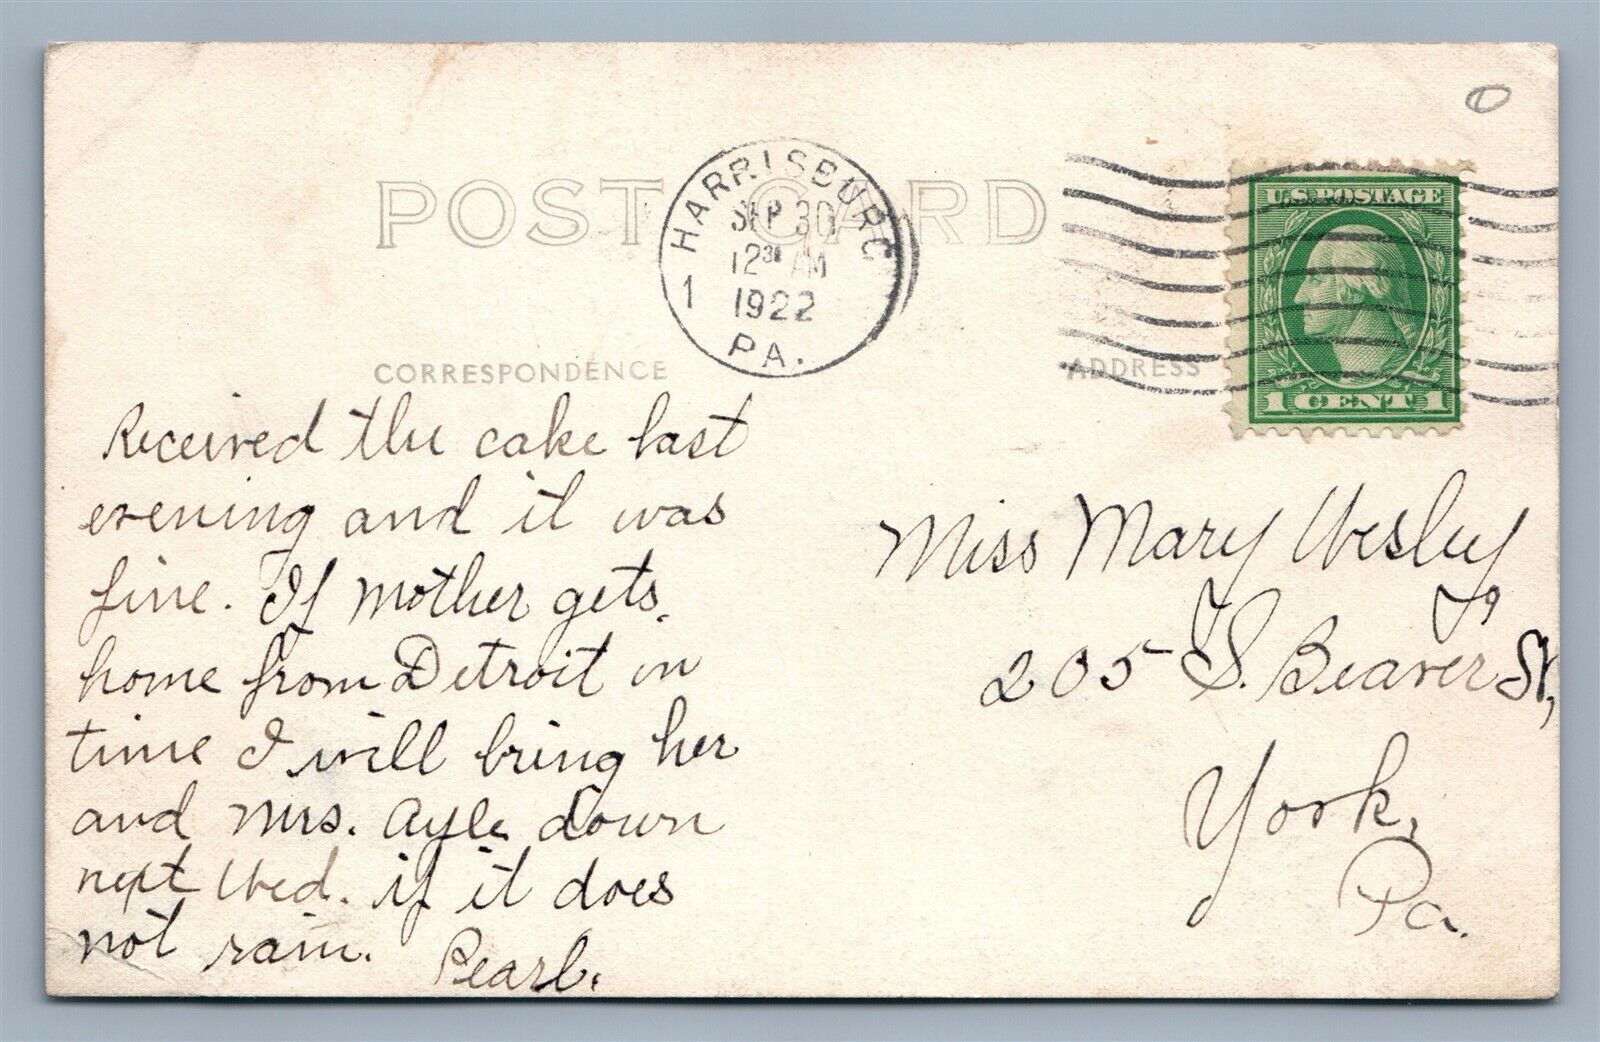 POST CARD
HARRISBURG
SEP 30
12 30 AM
1922
1
PA.
U.S. POSTAGE
1 CENT 1
CORRESPONDENCE
ADDRESS
Received the cake last
evening and it was
fine. If Mother gets
home from Detroit in
time I will bring her
and Mrs. Ayle down
next Wed. if it does
not rain. Pearl.
Miss Mary Wesley
205 S. Beaver St,
York,
Pa.